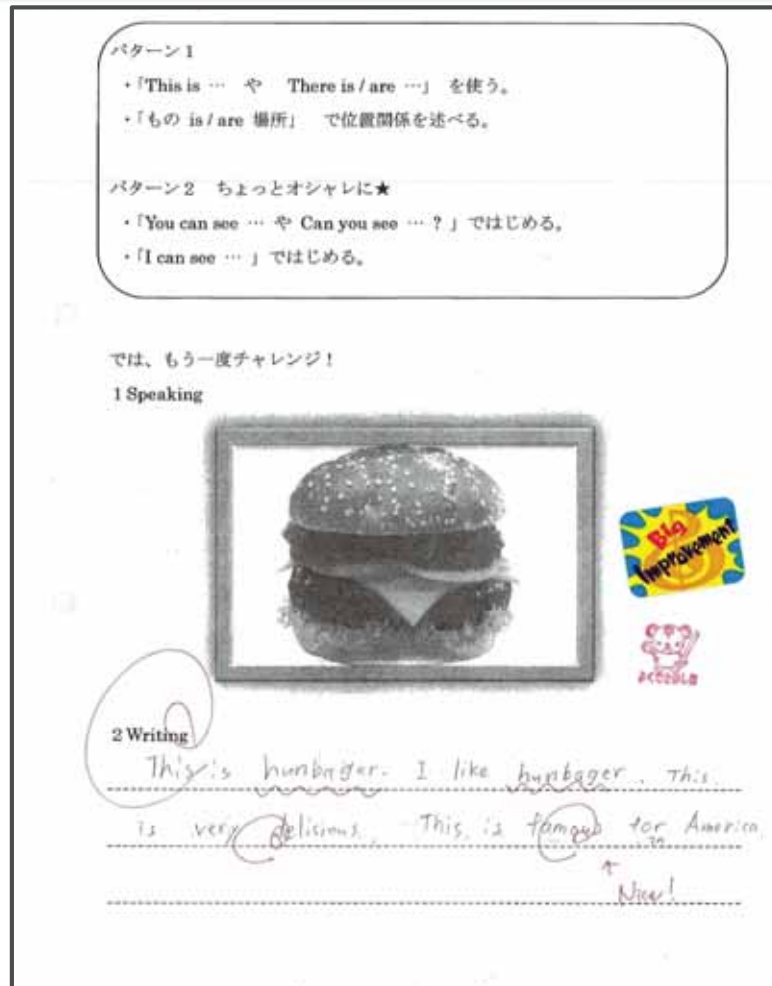 パターン1
・「This is … や There is / are …」 を使う。
・「もの is / are 場所」 で位置関係を述べる。
パターン2 ちょっとオシャレに★
・「You can see … や Can you see … ?」ではじめる。
・「I can see … 」ではじめる。
では、もう一度チャレンジ!
1 Speaking
Big
Improvement
よくできました
2 Writing
This is hunbager. I like hunbager. This
is very delisious. This is famous for America
in
Nice!